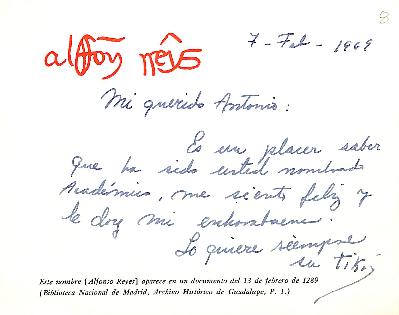 8
alffōn reyes
7 - Feb - 1969
Mi querido Antonio:
Es un placer saber
que ha sido usted nombrado
Académico, me siento feliz y
le doy mi enhorabuena.
Lo quiere siempre
su tikis
Este nombre [Alfonso Reyes] aparece en un documento del 13 de febrero de 1289
(Biblioteca Nacional de Madrid, Archivo Histórico de Guadalupe, P. 1.)